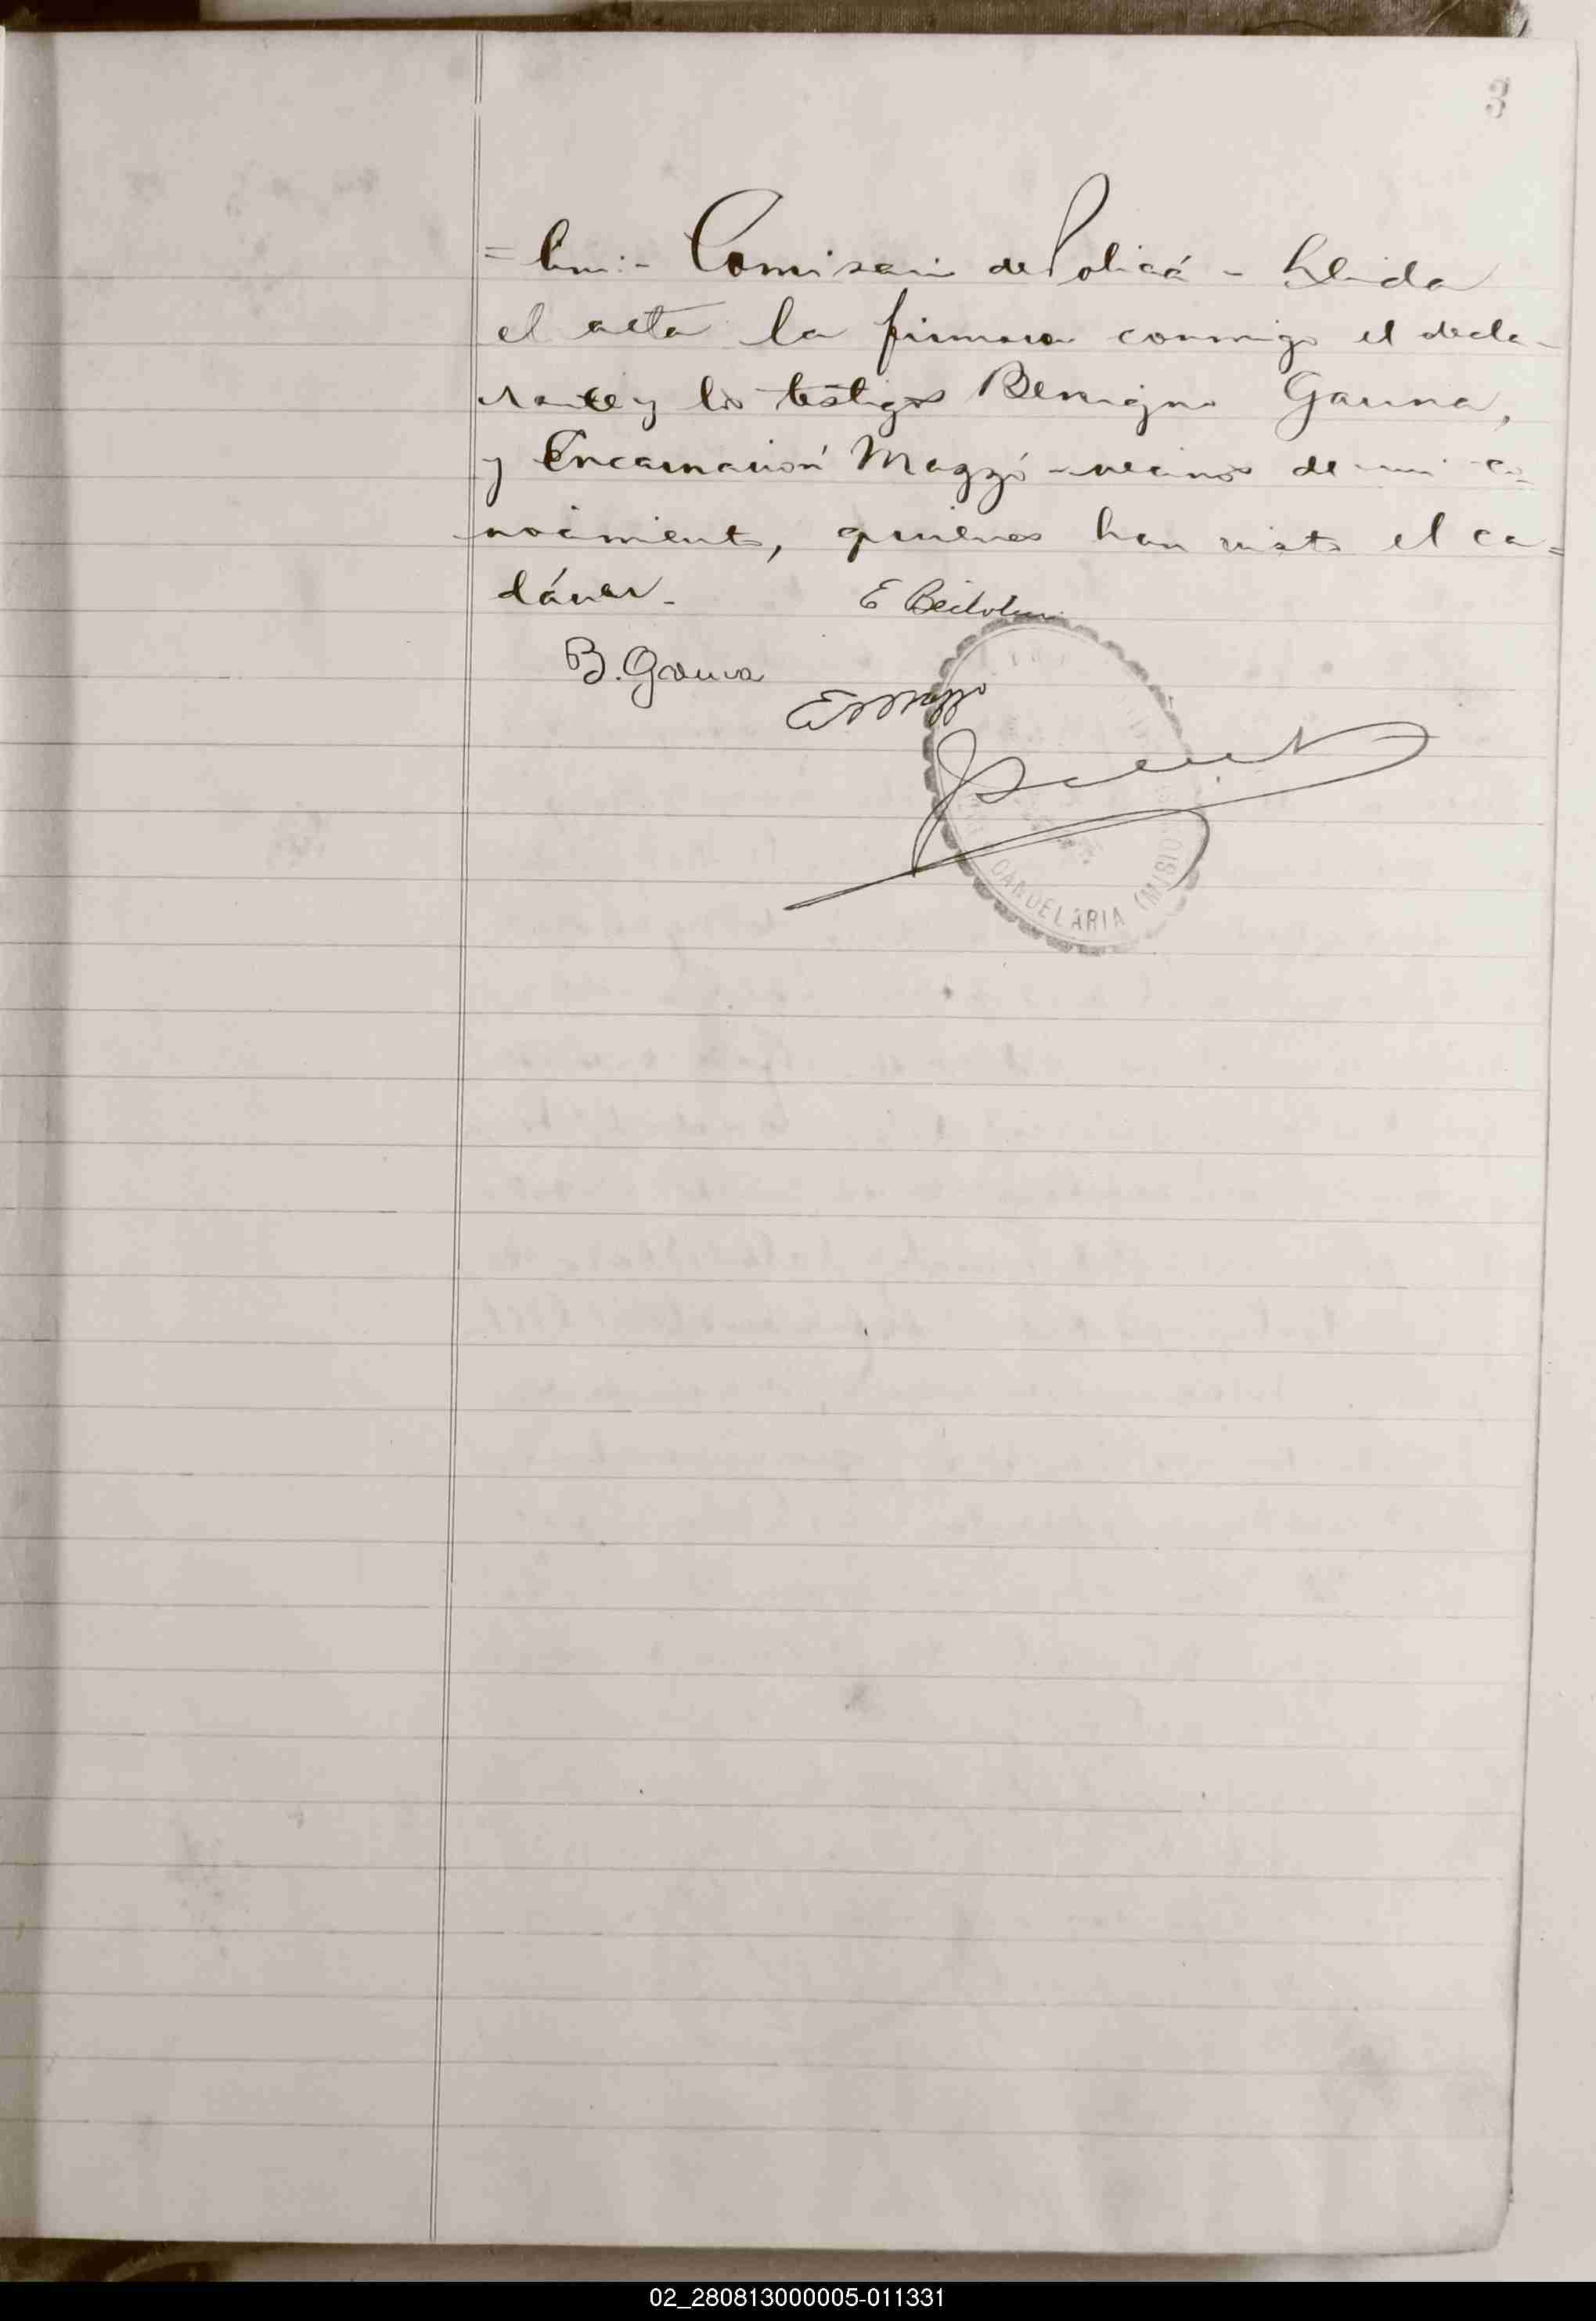 3
= lini:- Comisario de Policá - Leida
el acta la firmaron conmigo el decla-
rante y los testigos Benigno Gauna,
y Encarnación Mazzó - vecinos de mi co-
nocimiento, quienes han visto el ca=
dáver -
E Bertolini
B. Gauna
E Mazzo
CANDELARIA (MISIO
02_280813000005-011331